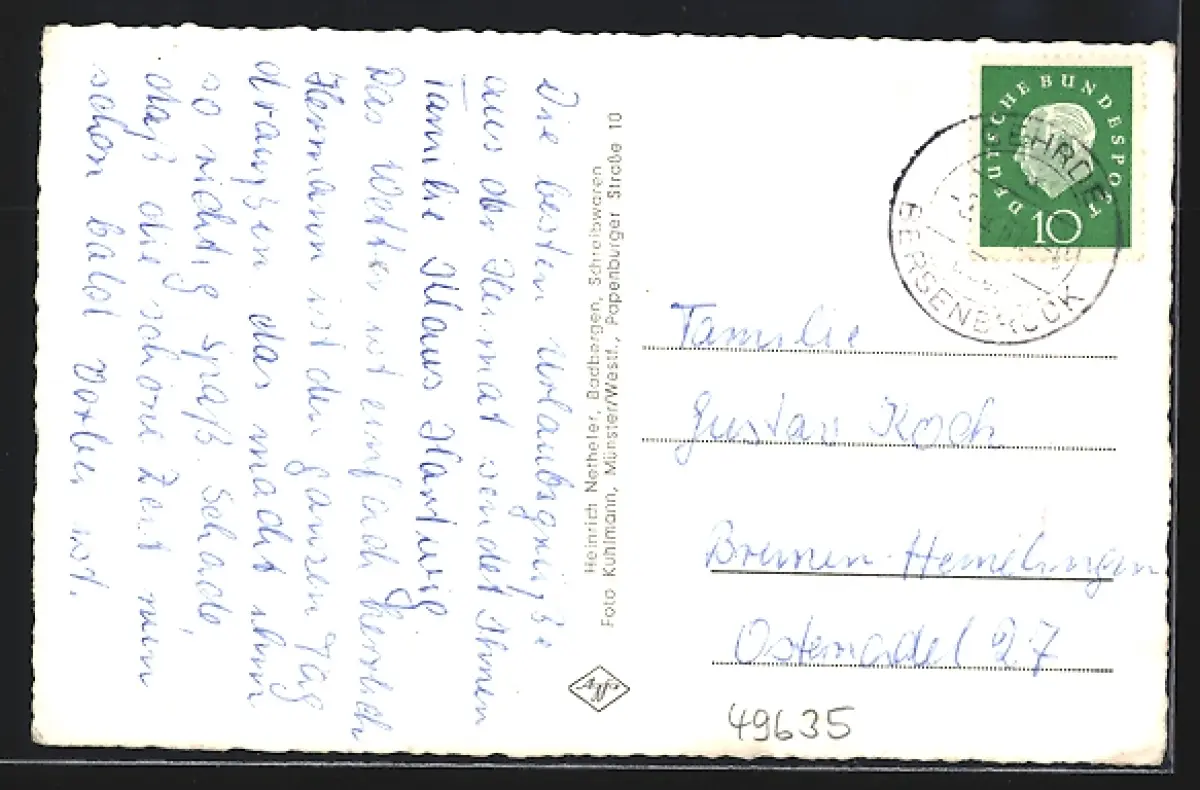 Die besten Urlaubsgrüße
aus der Heimat sendet Ihnen
Familie Klaus Hartwig
Das Wetter ist einfach herrlich
Hermann ist den ganzen Tag
draußen das macht ihm
so richtig spaß. Schade
daß die schöne Zeit nun
schon bald vorbei ist.
Heinrich Netheler, Badbergen, Schreibwaren
Foto Kuhlmann, Münster/Westf., Papenburger Straße 10
Agfa
DEUTSCHE BUNDESPOST
10
GEHRDE
BERSENBRÜCK
Familie
Gustav Koch
Bremen-Hemelingen
27
49635